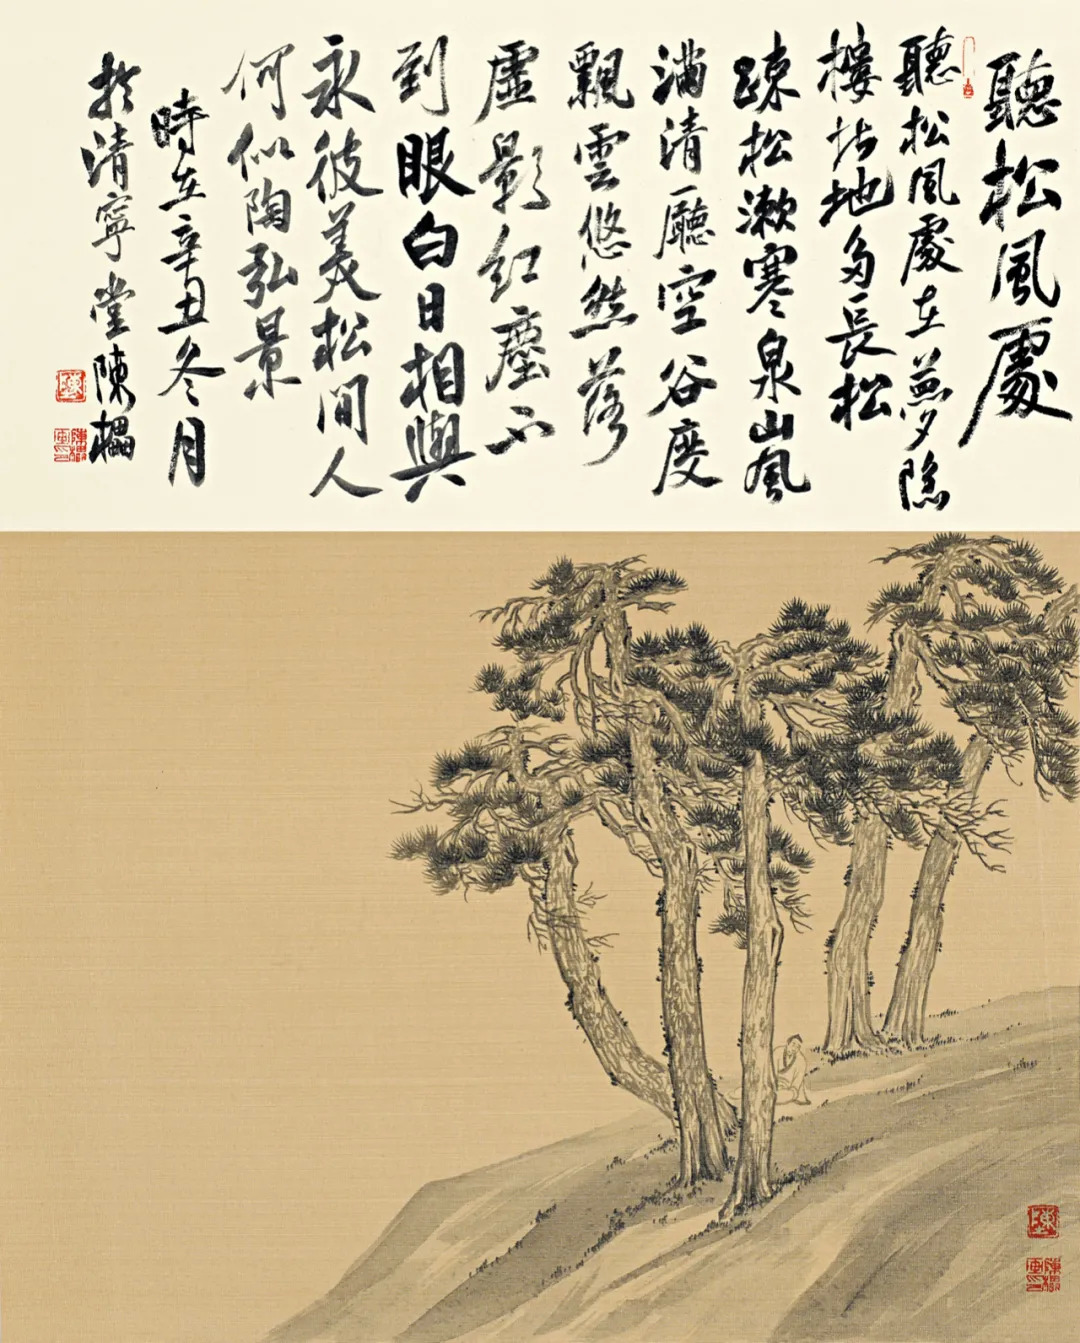 聽松風處
聽松風處在夢隱
樓北地多長松
疎松漱寒泉山風
滿清廳空谷度
飄雲悠然落
虛影紅塵不
到眼白日相與
永彼美松間人
何似陶弘景
時在辛丑冬月
於清寧堂陳
陳
陳